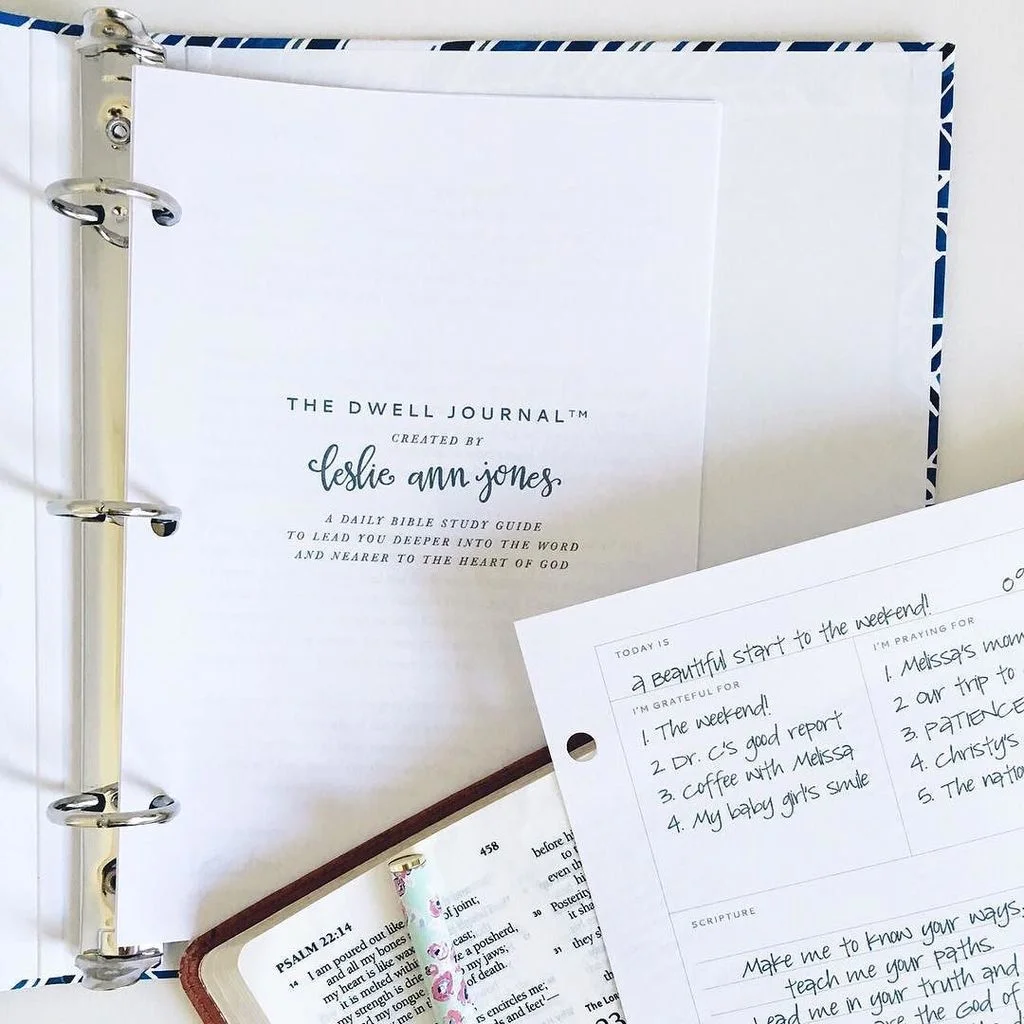 THE DWELL JOURNAL™
CREATED BY
leslie ann jones
A DAILY BIBLE STUDY GUIDE
TO LEAD YOU DEEPER INTO THE WORD
AND NEARER TO THE HEART OF GOD
TODAY IS
a Beautiful start to the weekend!
I'M GRATEFUL FOR
1. The weekend!
2. Dr. C's good report
3. Coffee with Melissa
4. My baby girl's smile
I'M PRAYING FOR
1. Melissa's mom
2. Our trip to
3. PATIENCE
4. Christy's
5. The natio
SCRIPTURE
Make me to know your ways,
teach me your paths.
Lead me in your truth and
are the God of
PSALM 22:14
458
14 I am poured out like
and all my bones
my heart is like wax
it is melted withi
of joint;
east;
e a potsherd,
my jaws;
of death.
rs encircles me;
ds and feet—
before hi
to
even th
hi
30 Posterity
it sha
31 they s
th
The Lor
23